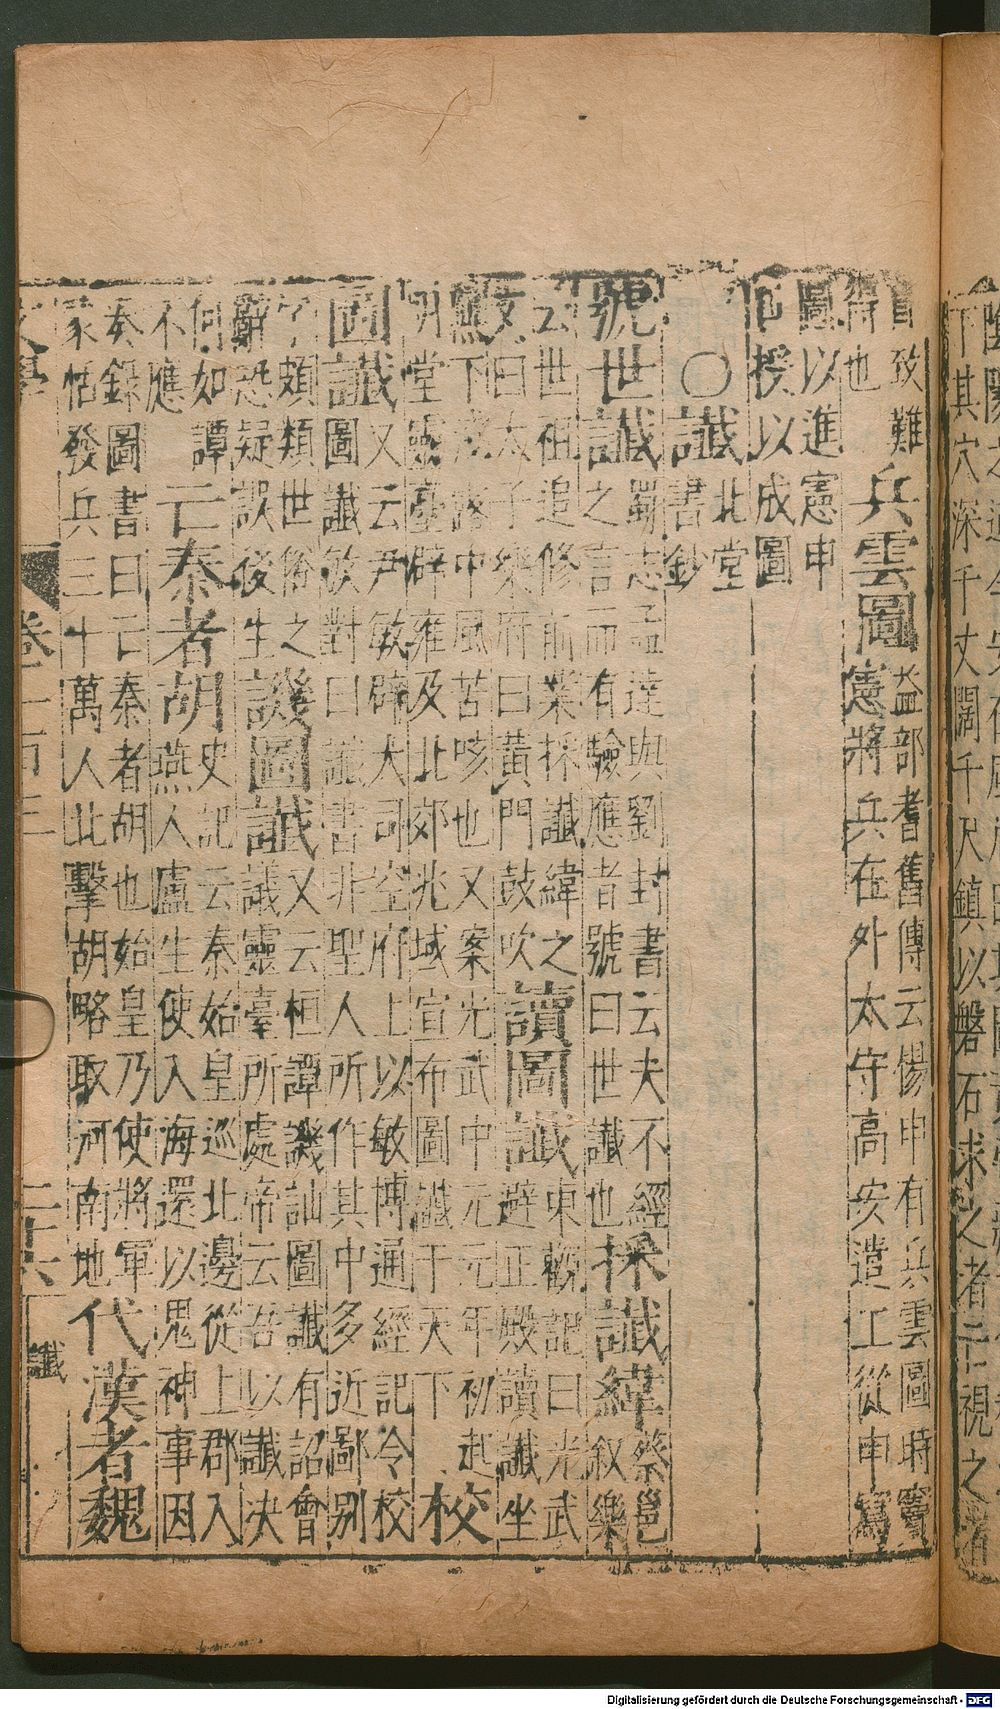 自致難兵雲圖益部耆舊傳云楊申有兵雲圖時竇
得也憲將兵在外太守高安遣工從申寫
圖以進憲申
叵授以成圖
○讖北堂
書鈔
號世讖蜀志孟達與劉封書云夫不經
之言而有驗應者號曰世讖也採讖緯蔡邕
叙樂
云世祖追修前業採讖緯之
文曰太予樂府曰黃門鼓吹讀圖讖東觀記曰光武
避正殿讀讖坐
廡下淺露中風苦咳也又案光武中元元年初起
明堂靈臺辟雍及北郊兆域宣布圖讖于天下校
圖讖又云尹敏辟大司空府上以敏博通經記令校
圖讖敏對曰讖書非聖人所作其中多近鄙別
字頗類世俗之
辭恐疑誤後生譏圖讖又云桓譚譏訕圖讖有詔會
議靈臺所處帝云吾以讖決
何如譚
不應亡秦者胡史記云秦始皇巡北邊從上郡入
燕人盧生使入海還以鬼神事因
奏錄圖書曰亡秦者胡也始皇乃使將軍
蒙恬發兵三十萬人北擊胡略取河南地代漢者魏
文學 卷一百三 二十六 讖
下其穴深千丈闊千尺鎮以磐石求之者
視之
Digitalisierung gefördert durch die Deutsche Forschungsgemeinschaft - DFG